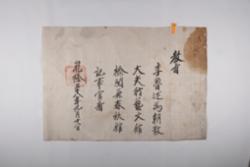 敎旨
李爲朝散
大夫行藝文館
檢閱兼春秋館
記事官者
乾隆年月日